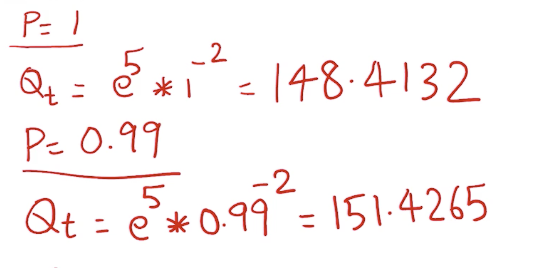 P= 1
Qt = e^5 * 1^-2 = 148.4132
P= 0.99
Qt = e^5 * 0.99^-2 = 151.4265